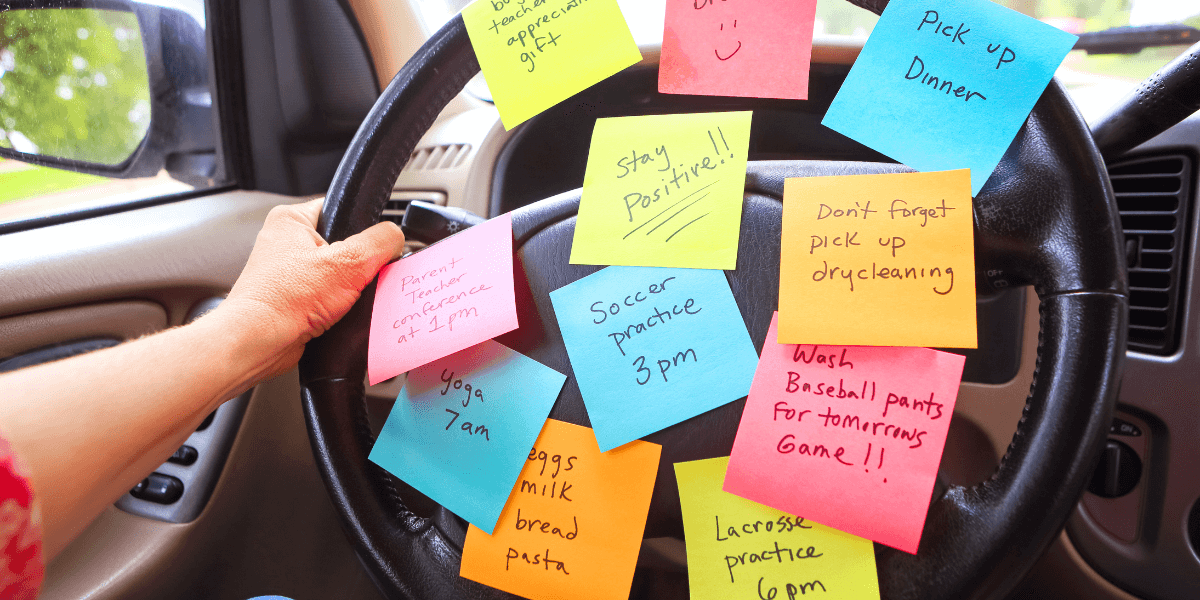 teacher
appreciation
gift
Pick up
Dinner
Stay
Positive!!
Don't forget
pick up
drycleaning
Parent
Teacher
conference
at 1pm
Soccer
practice
3pm
Yoga
7am
Wash
Baseball pants
For tomorrows
Game!!
eggs
milk
bread
pasta
Lacrosse
practice
6pm